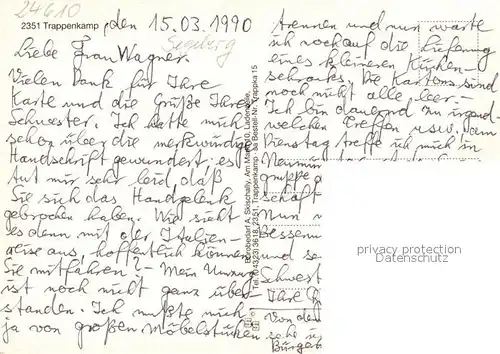 24610
2351 Trappenkamp, den 15.03.1990
Segeberg
Liebe Frau Wagner.
Vielen Dank für Ihre
Karte und die Grüße Ihrer
Schwester. Ich hatte mich
schon über die merkwürdige
Handschrift gewundert; es
tut mir sehr leid, daß
Sie sich das Handgelenk
gebrochen haben. Wie sieht
es denn mit der Italien-
reise aus, hoffentlich können
Sie mitfahren? - Mein Umzug
ist noch nicht ganz über-
standen. Ich mußte mich
ja von großen Möbelstücken
Bürobedarf A. Skischally, Am Markt
Tel. (04323) 3618, 2351 Trappenkamp
Bestell-Nr. Trappka 15
trennen und nun warte
ich noch auf die Lieferung
eines kleineren Küchen-
schranks. Die Kartons sind
noch nicht alle leer. -
Ich bin dauernd zu irgend-
welchen Treffen usw. am
Dienstag treffe ich mich in
Neumün
gruppe
schaft
Nun
Bessenu
und se
Schwest
Ihre
Von den
sche
Bürger
privacy protection
Datenschutz